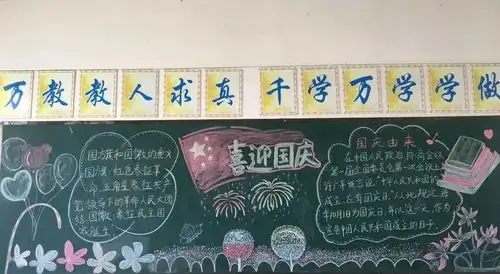 万教教人求真 千学万学学做
国方旗和国徽的意义
国方旗：红色象征革
命，五角星象征共产
党领导下的革命人民大团
结国徽：象征民主国
诞生
喜迎国庆
国庆由来
在中国人民政治协商会议
第一届全国委员会第一次会议上
成立，在有国庆日
年10月1日为国庆日，年以这一天，作为
宣告中国人民共和国成立的日子。